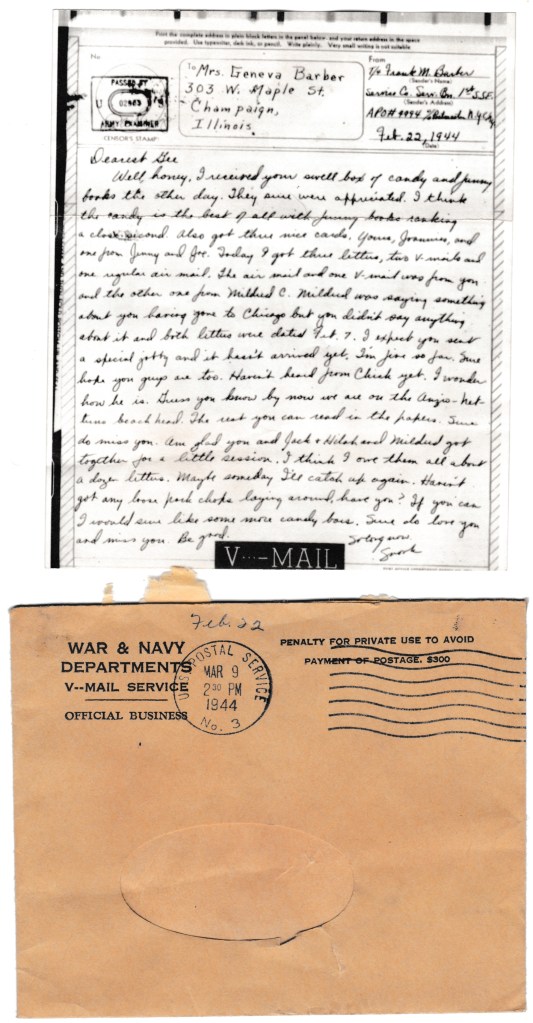 Print the complete address in plain block letters in the panel below, and your return address in the space
provided. Use typewriter, dark ink, or pencil. Write plainly. Very small writing is not suitable.
No.
PASSED BY
U
ARMY EXAMINER
CENSOR'S STAMP
To Mrs. Geneva Barber
303 W. Maple St.
Champaign,
Illinois.
From
T/4 Frank M. Barber
(Sender's Name)
Service Co. Serv. Bn. 1st S.S.F.
(Sender's Address)
APO# 9994 Postmaster N.Y. City
Feb. 22, 1944
(Date)
Dearest Gee
Well, honey, I received your swell box of candy and funny
books the other day. They sure were appreciated. I think
the candy is the best of all with funny books ranking
a close second. Also got three nice cards. Yours, Joannies, and
one from Jinny and Joe. Today I got three letters, two V-mails and
one regular air mail. The air mail and one V-mail was from you
and the other one from Mildred C. Mildred was saying something
about you having gone to Chicago but you didn't say anything
about it and both letters were dated Feb. 7. I expect you sent
a special and it hasn't arrived yet. I'm fine so far. Sure
hope you guys are too. Haven't heard from Chick yet. I wonder
how he is. Guess you know by now we are on the Anzio-Net-
tuno beach head. The rest you can read in the papers. Sure
do miss you. Am glad you and Jack + and Mildred got
together for a little session. I think I owe them all about
a dozen letters. Maybe someday I'll catch up again. Haven't
got any loose pork chops laying around, have you? If you can
I would sure like some more candy bars. Sure do love you
and miss you. Be good.
So long now
V···—MAIL
Feb. 22
WAR & NAVY
DEPARTMENTS
V--MAIL SERVICE
OFFICIAL BUSINESS
U.S. POSTAL SERVICE
MAR 9
2 30 PM
1944
No. 3
PENALTY FOR PRIVATE USE TO AVOID
PAYMENT OF POSTAGE, $300